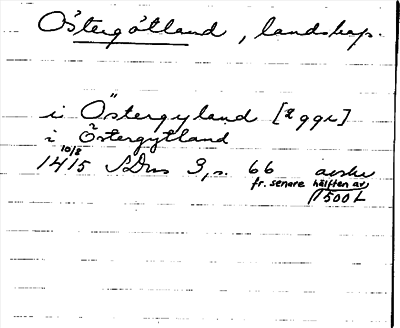 Östergötland, landskap.
i Östergyland [2 ggr]
i Östergytland
10/2
1415 SDns 3, s. 66 avskr
fr. senare hälften av
1500 t.